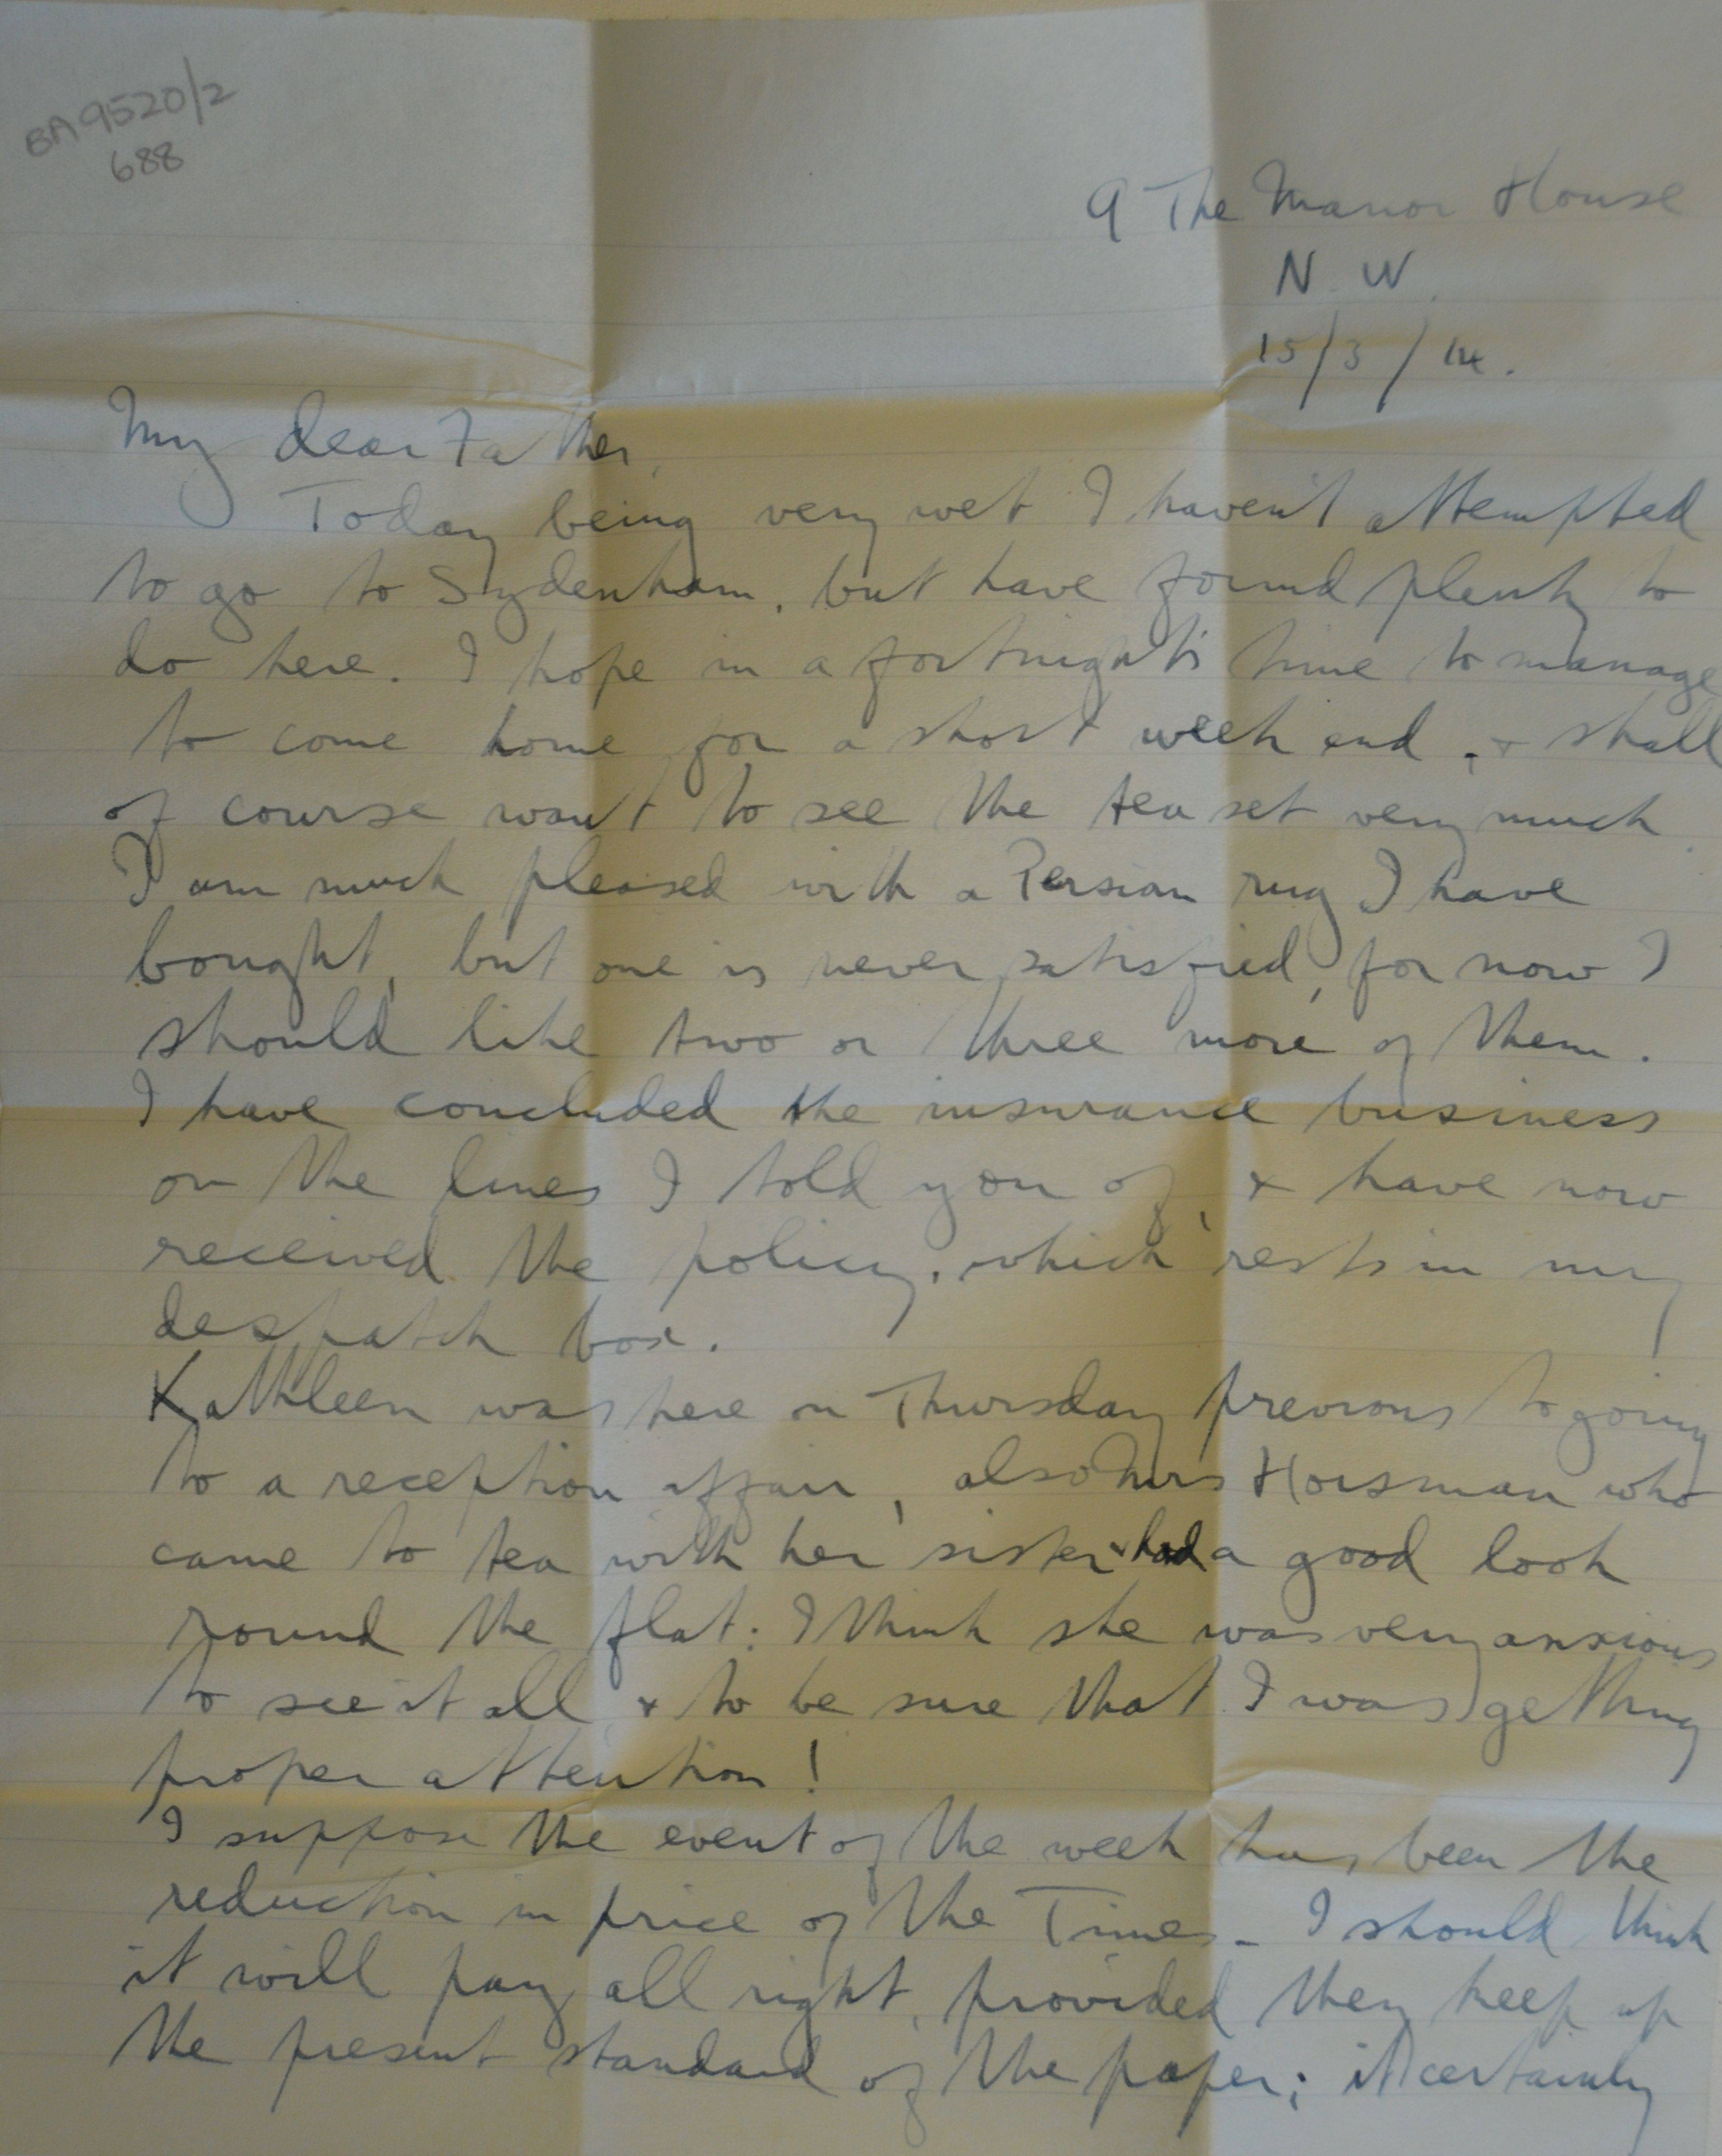 BA9520/2
688
9 The Manor House
N. W.
15/3/14.
My dear Father,
Today being very wet I haven't attempted
to go to Sydenham, but have found plenty to
do here. I hope in a fortnight's time to manage
to come home for a short week end, & shall
of course want to see the tea set very much.
I am much pleased with a Persian rug I have
bought, but one is never satisfied, for now I
should like two or three more of them.
I have concluded the insurance business
on the lines I told you of, & have now
received the policy, which rests in my
despatch box.
Kathleen was here on Thursday previous to going
to a reception affair, also Mrs Horsman who
came to tea with her sister & had a good look
round the flat: I think she was very anxious
to see it all & to be sure that I was getting
proper attention!
I suppose the event of the week has been the
reduction in price of the Times - I should think
it will pay all right, provided they keep up
the present standard of the paper; it certainly